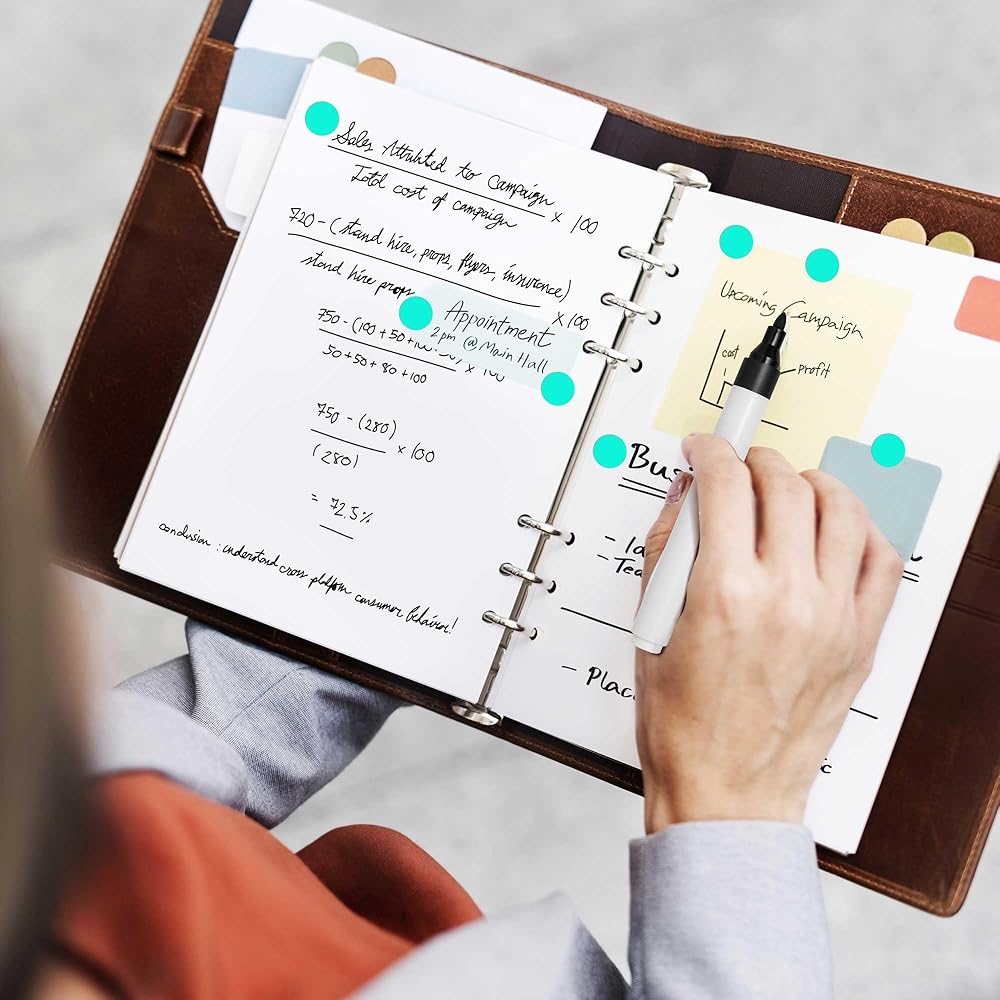 Sales Attributed to Campaign
Total cost of campaign
x 100
720 - (stand hire, props, flyers, insurance)
stand hire props
x 100
Appointment
2pm @ Main Hall
750 - (100 + 50 +
50 + 50 + 80 + 100
x 100
750 - (280)
(280)
x 100
= 72.5%
conclusion : understand cross platform consumer behavior!
Upcoming Campaign
cost
profit
- Plac